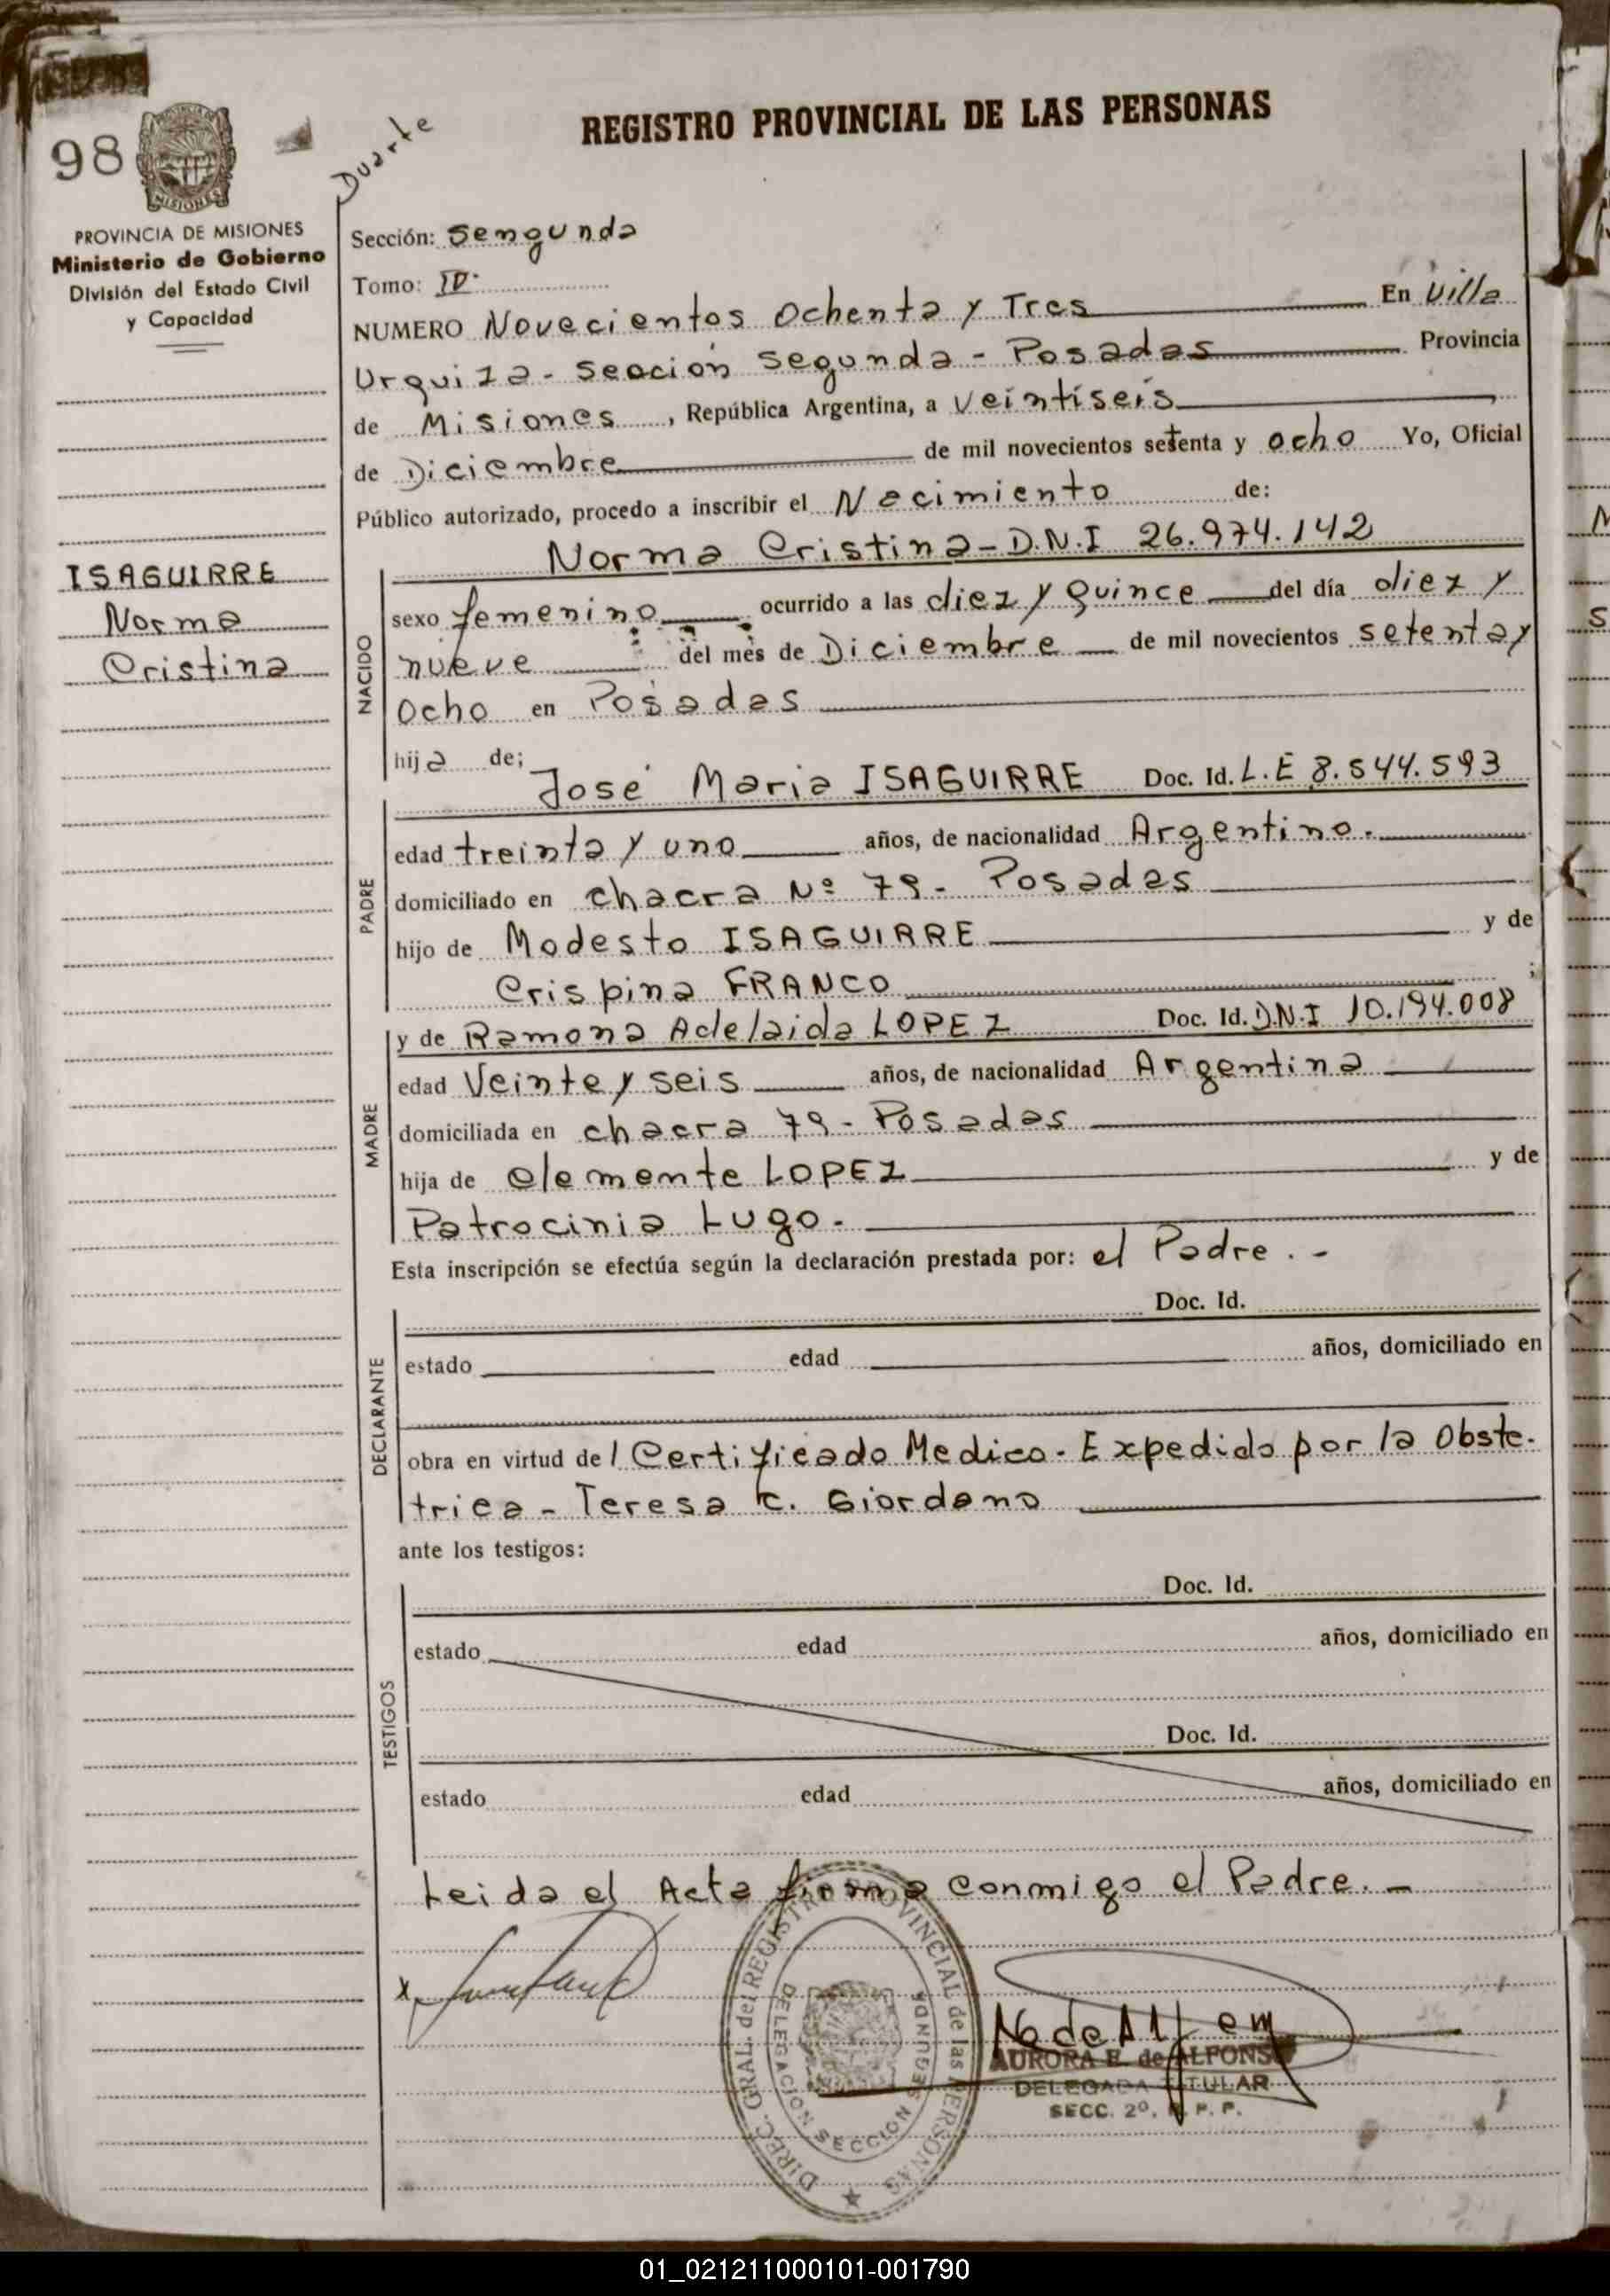 98
Duarte
REGISTRO PROVINCIAL DE LAS PERSONAS
PROVINCIA DE MISIONES
Ministerio de Gobierno
División del Estado Civil
y Capacidad
ISAGUIRRE
Norma
Cristina
Sección: Sengunda
Tomo: IV.
NUMERO Novecientos Ochenta y Tres En Villa
Urquiza - Seación Segunda - Posadas Provincia
de Misiones, República Argentina, a Veintiseis
de Diciembre de mil novecientos setenta y ocho Yo, Oficial
Público autorizado, procedo a inscribir el Nacimiento de:
NACIDO
Norma Cristina - D.N.I 26.974.142
sexo femenino ocurrido a las diez y Quince del día diez y
nueve del mes de Diciembre de mil novecientos setenta y
Ocho en Posadas
hija de;
PADRE
José Maria ISAGUIRRE Doc. Id. L.E 8.544.593
edad treinta y uno años, de nacionalidad Argentino.
domiciliado en chacra Nº 79 - Posadas
hijo de Modesto ISAGUIRRE y de
Crispina FRANCO ;
MADRE
y de Ramona Adelaida LOPEZ Doc. Id. D.N.I 10.194.008
edad Veinte y seis años, de nacionalidad Argentina
domiciliada en chacra 79 - Posadas
hija de Clemente LOPEZ y de
Patrocinia Lugo.
Esta inscripción se efectúa según la declaración prestada por: el Padre. -
DECLARANTE
Doc. Id.
estado edad años, domiciliado en
obra en virtud del Certificado Medico - Expedido por la Obste-
trica - Teresa C. Giordano
ante los testigos:
TESTIGOS
Doc. Id.
estado edad años, domiciliado en
Doc. Id.
estado edad años, domiciliado en
Leida el Acta firma conmigo el Padre. -
DIREC. GRAL. del REGISTRO PROVINCIAL de las PERSONAS
DELEGACION SECCION SEGUNDA
AURORA E. de ALFONSO
DELEGADA TITULAR
SECC. 2º. R. P. P.
01_021211000101-001790